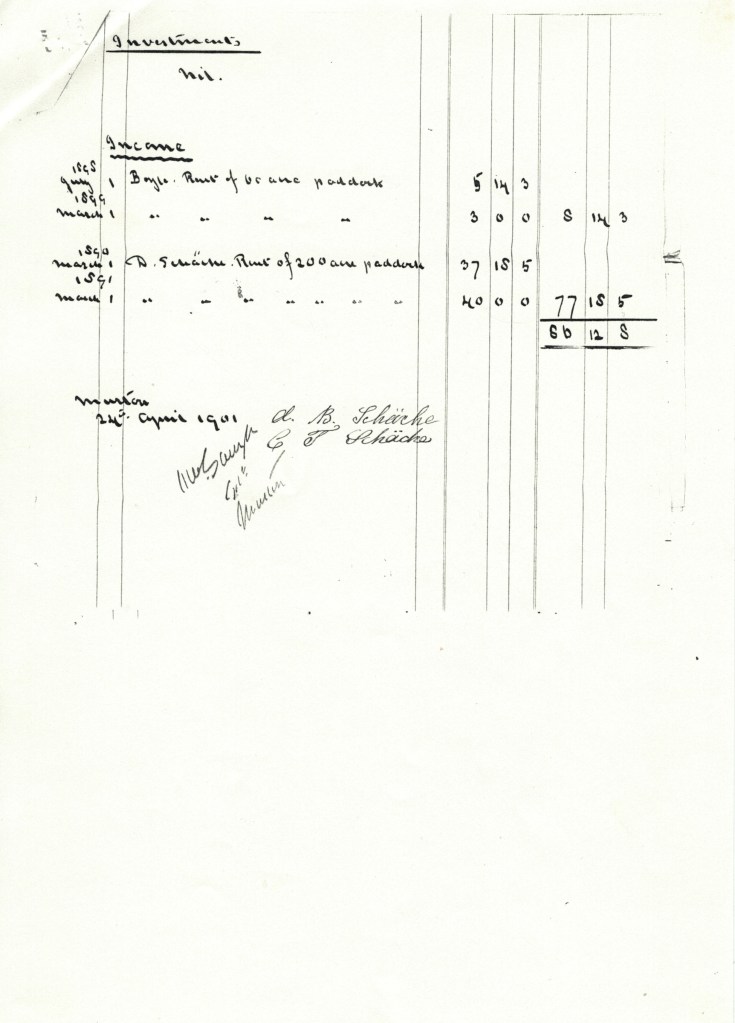 Investments
Nil.
Income
1898
July 1 Boyle. Rent of 60 acre paddock 5 14 3
1899
March 1 " " " " 3 0 0 8 14 3
1890
March 1 D. Schäche. Rent of 200 acre paddock 37 18 5
1891
March 1 " " " " " " " 40 0 0 77 18 5
86 12 8
Marton
24th April 1901 A. B. Schäche
C F Schäche
Marton